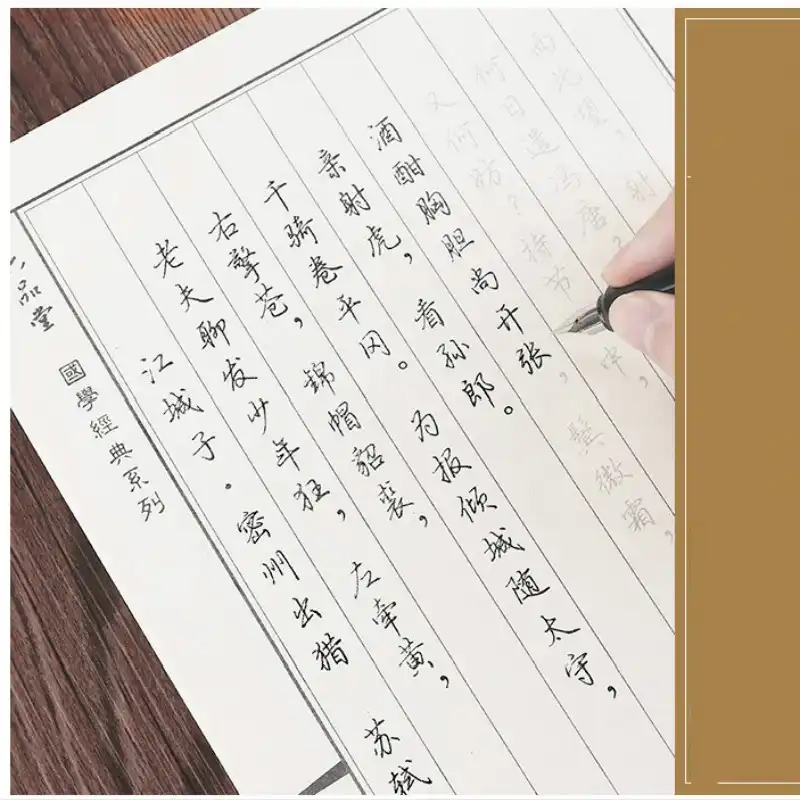 一品堂 國學經典系列
江城子·密州出猎 苏轼
老夫聊发少年狂,左牵黄,
右擎苍,锦帽貂裘,
千骑卷平冈。为报倾城随太守,
亲射虎,看孙郎。
酒酣胸胆尚开张,鬓微霜,
又何妨?持节中,
何日遣冯唐?
西北望,射